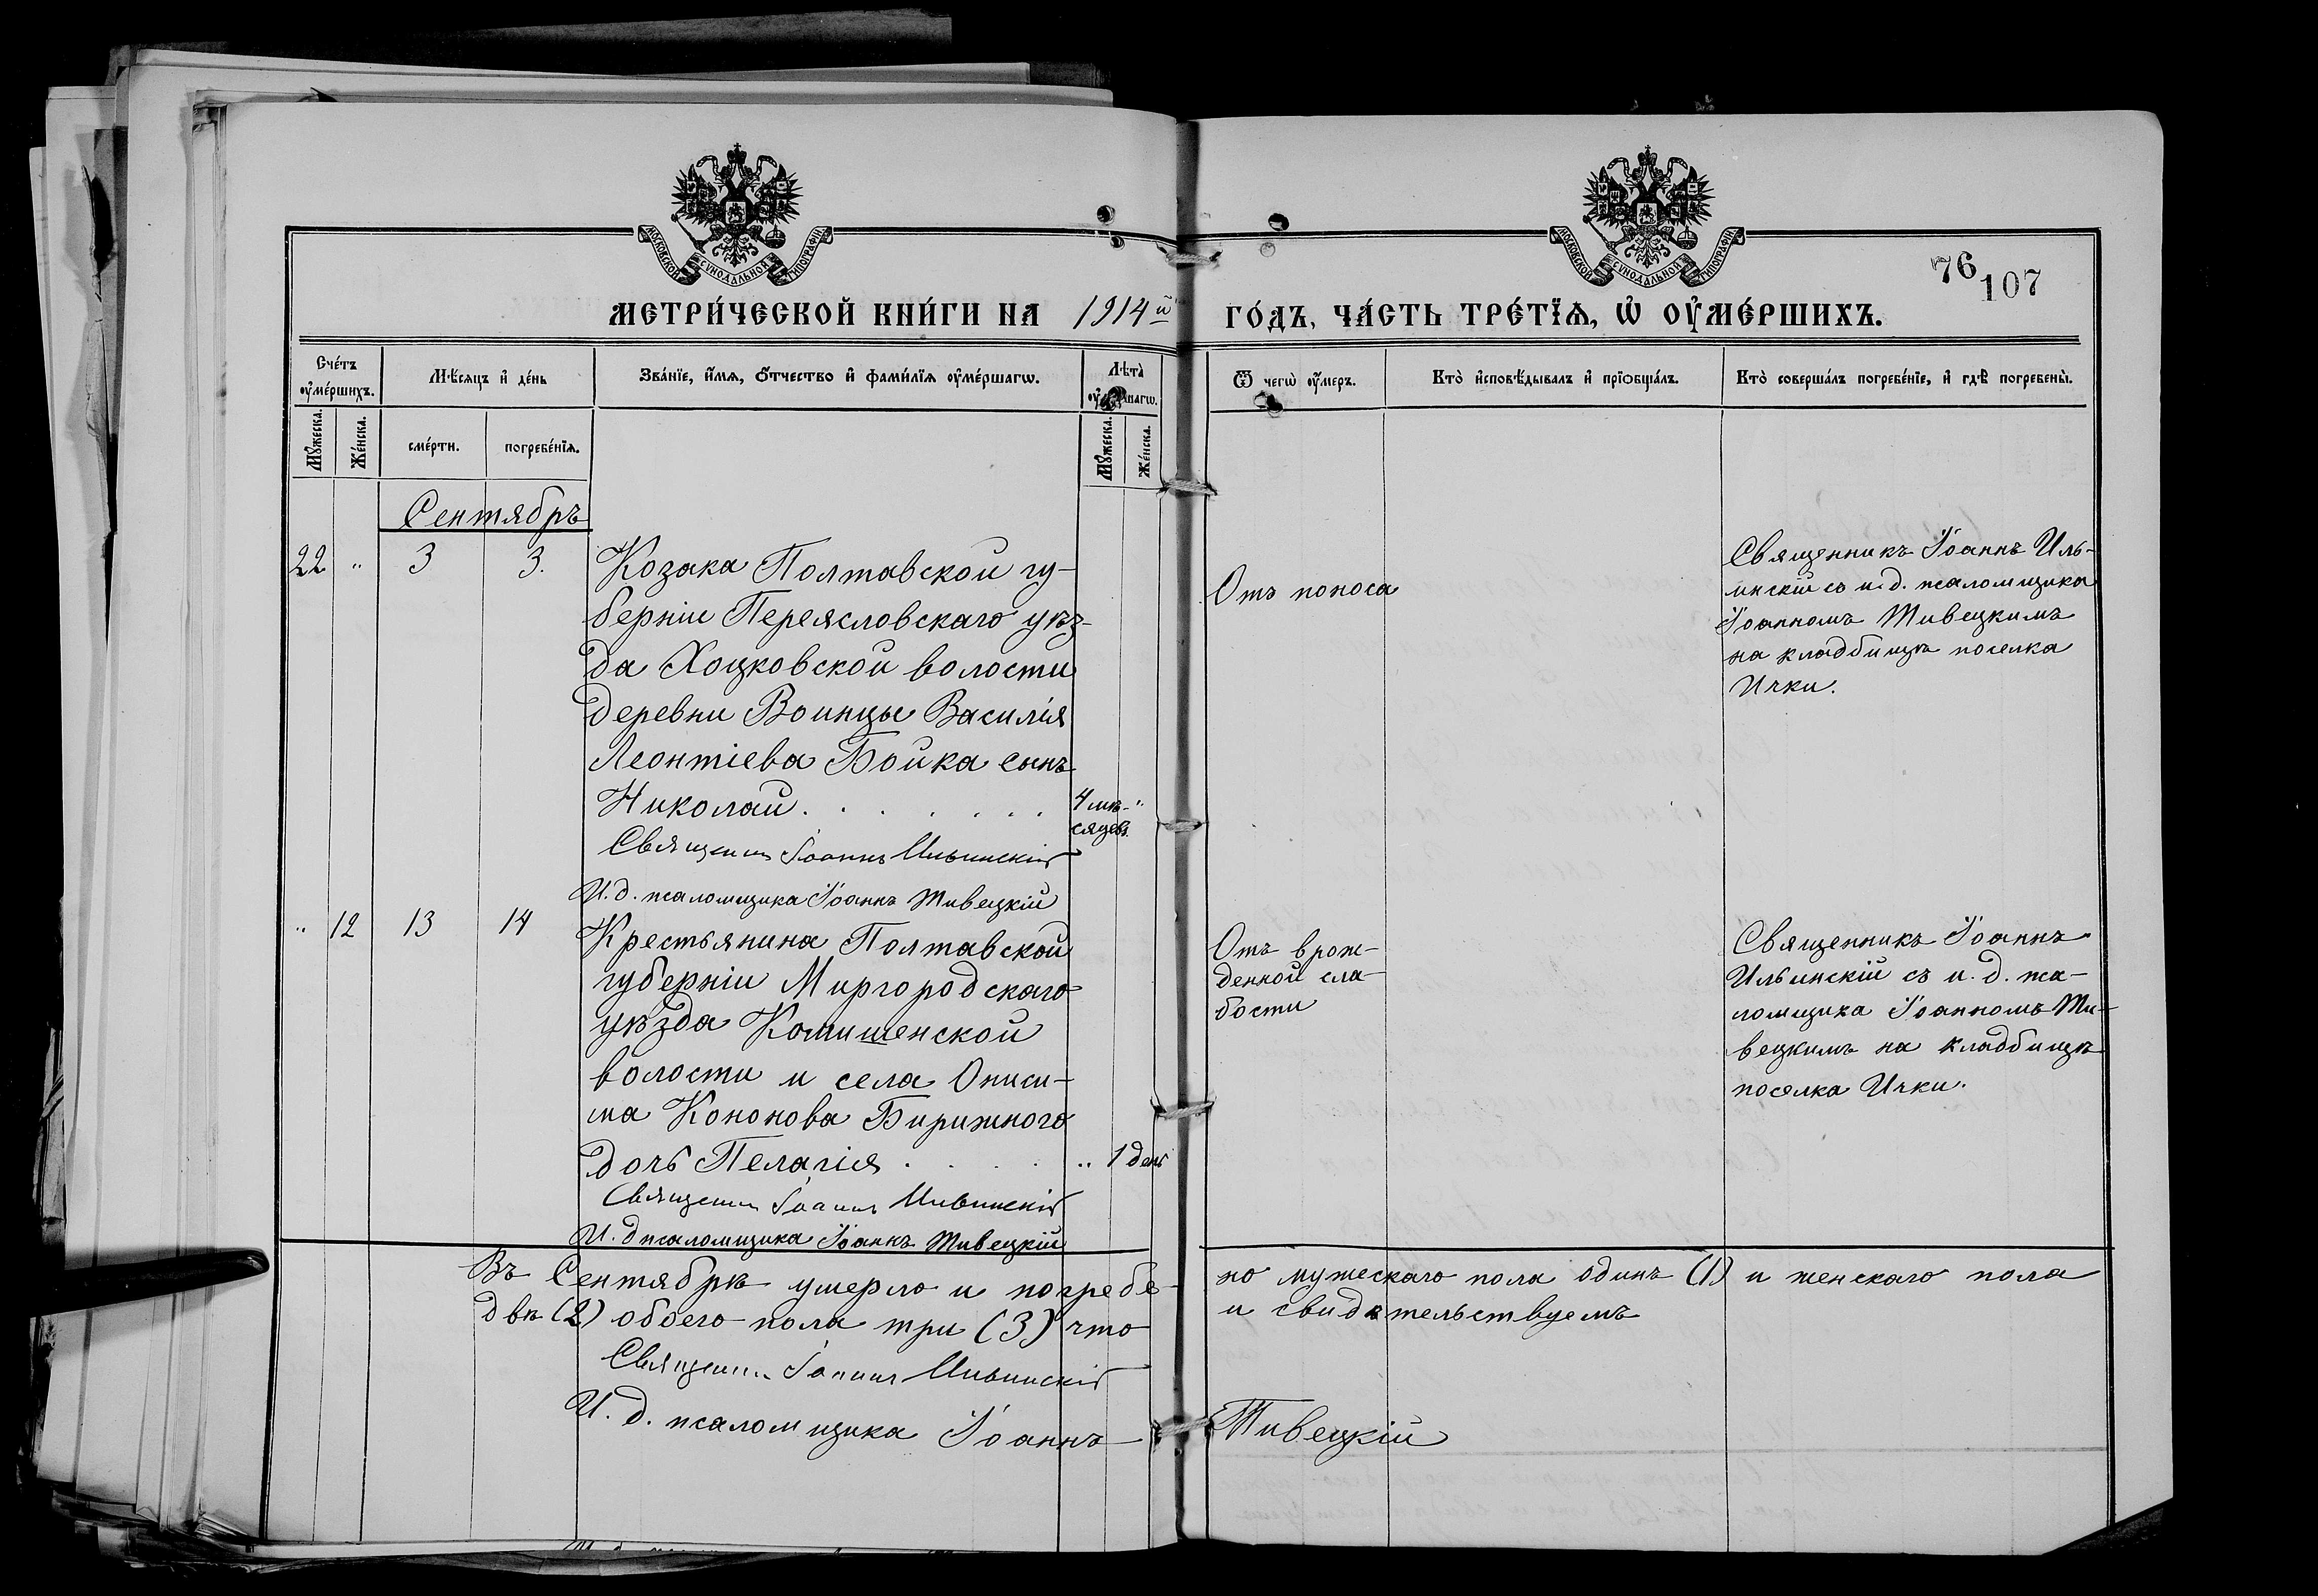 МОСКОВСКОЙ СУНОДАЛЬНОЙ ТИПОГРАФІИ
МОСКОВСКОЙ СУНОДАЛЬНОЙ ТИПОГРАФІИ
76
107
МЕТРИ́ЧЕСКОЙ КНИ́ГИ НА 1914й ГО́ДЪ, ЧА́СТЬ ТРЕ́ТЇѦ, Ѡ҆ ОУ҆МЕ́РШИХЪ.
Сче́тъ оу҆ме́ршихъ.
Мѣ́сяцъ и҆ де́нь
Зва́нїе, и҆́мѧ, ѻ҆́тчество и҆ фами́лїѧ оу҆ме́ршагѡ.
Лѣ̀та
Ѿ чегѡ̀ оу҆́меръ.
Кто̀ и҆сповѣ́дывалъ и҆ прїѻбща́лъ.
Кто̀ соверша́лъ погребе́нїе, и҆ гдѣ̀ погребены̀.
Мꙋ́жеска.
Же́нска.
сме́рти.
погребе́нїѧ.
Мꙋ́жеска.
Же́нска.
Сентябрь
22 " 3 3.
Козака Полтавской гу-
берніи Переясловскаго уѣз-
да Хоцковской волости
деревни Воинцы Василія
Леонтіева Бойка сынъ
Николай . . . . . . .
4 мѣ- "
сяцевъ.
Священн Іоаннъ Ильинскій
И. д. псаломщика Іоаннъ Тивецкій
Отъ поноса
Священникъ Іоаннъ Иль-
инскій съ и. д. псаломщика
Іоанномъ Тивецкимъ
на кладбищѣ поселка
Ички.
" 12 13 14
Крестьянина Полтавской
губерніи Миргородскаго
уѣзда Комишенской
волости и села Ониси-
ма Кононова Бирижного
дочь Пелагія . . . . " 1 день
Священн Іоаннъ Ильинскій
И. д псаломщика Іоаннъ Тивецкій
Отъ врож-
денной сла-
бости
Священникъ Іоаннъ
Ильинскій съ и. д. пса-
ломщика Іоанномъ Ти-
вецкимъ на кладбищѣ
поселка Ички.
Въ Сентябрѣ умерло и погребе- но мужескаго пола одинъ (1) и женскаго пола
двѣ (2) обоего пола три (3) что и свидѣтельствуемъ
Священн Іоаннъ Ильинскій
И. д. псаломщика Іоаннъ Тивецкій